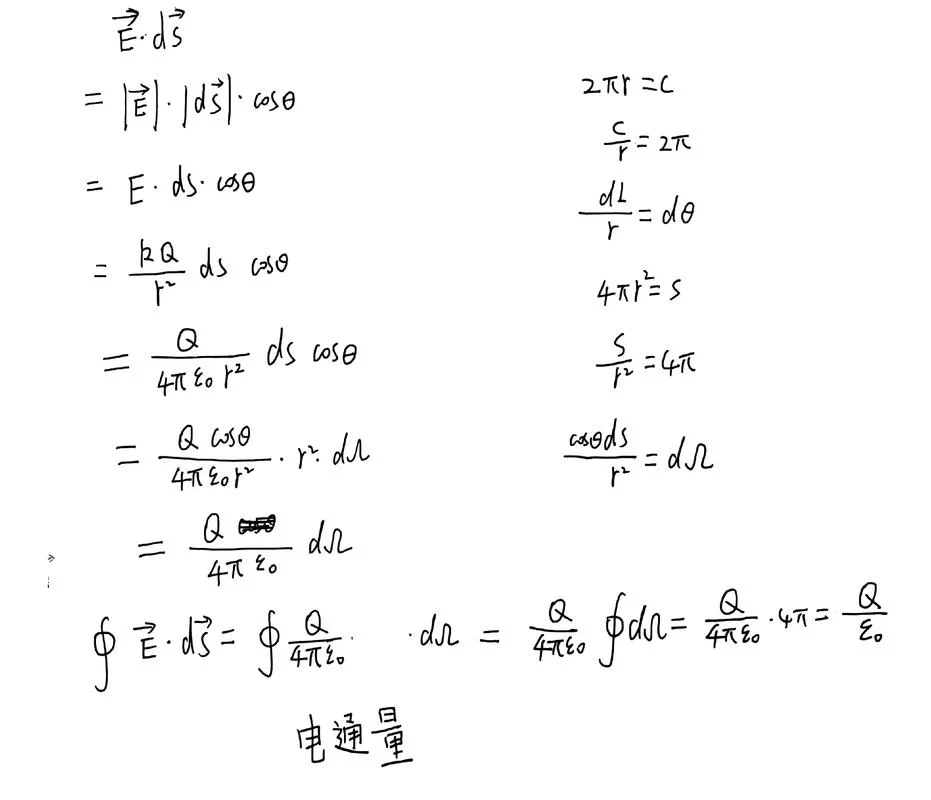 $\vec{E}\cdot d\vec{s}$
$= |\vec{E}|\cdot|d\vec{s}|\cdot\cos\theta$
$= E\cdot ds\cdot\cos\theta$
$= \frac{kQ}{r^2} ds \cos\theta$
$= \frac{Q}{4\pi\varepsilon_0 r^2} ds \cos\theta$
$= \frac{Q\cos\theta}{4\pi\varepsilon_0 r^2}\cdot r^2\cdot d\Omega$
$= \frac{Q}{4\pi\varepsilon_0} d\Omega$
$2\pi r = C$
$\frac{C}{r} = 2\pi$
$\frac{dL}{r} = d\theta$
$4\pi r^2 = S$
$\frac{S}{r^2} = 4\pi$
$\frac{\cos\theta ds}{r^2} = d\Omega$
$\oint \vec{E}\cdot d\vec{s} = \oint \frac{Q}{4\pi\varepsilon_0}\cdot \quad \cdot d\Omega = \frac{Q}{4\pi\varepsilon_0}\oint d\Omega = \frac{Q}{4\pi\varepsilon_0}\cdot 4\pi = \frac{Q}{\varepsilon_0}$
电通量